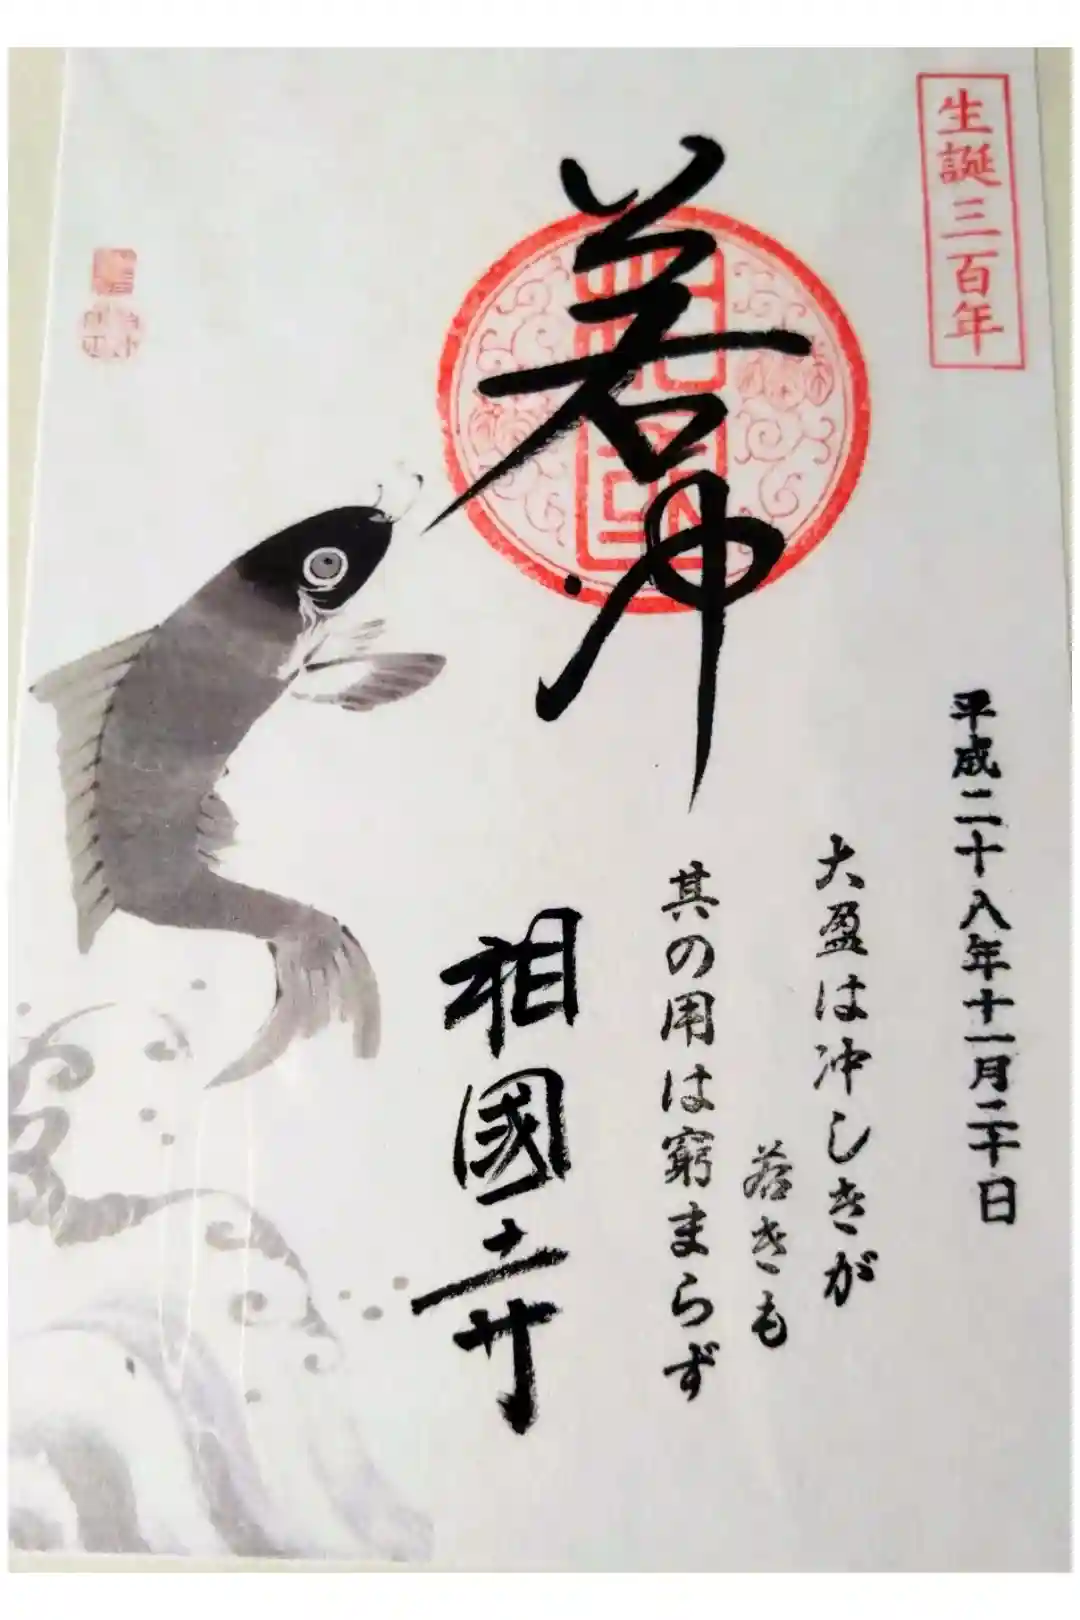 生誕三百年
平成二十八年十一月二十日
若冲
大盈は冲しきが
若きも
其の用は窮まらず
相國寺